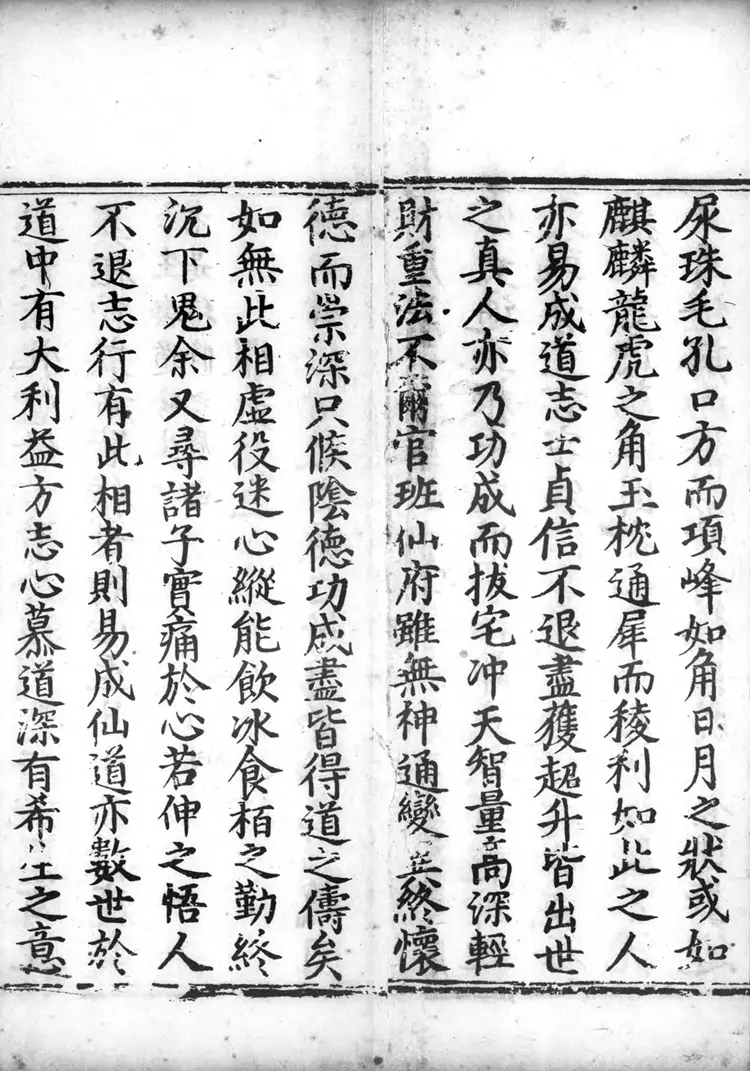 尿珠毛孔口方而項峰如角日月之狀或如
麒麟龍虎之角玉枕通犀而稜利如此之人
亦易成道志士貞信不退盡獲超升皆出世
之真人亦乃功成而拔宅冲天智量高深輕
財重法不爾官班仙府雖無神通變異終懷
德而崇深只候陰德功成盡皆得道之儔矣
如無此相虛役迷心縱能飲冰食栢之勤終
沉下鬼余又尋諸子實痛於心若伸之悟人
不退志行有此相者則易成仙道亦數世於
道中有大利益方志心慕道深有希生之意